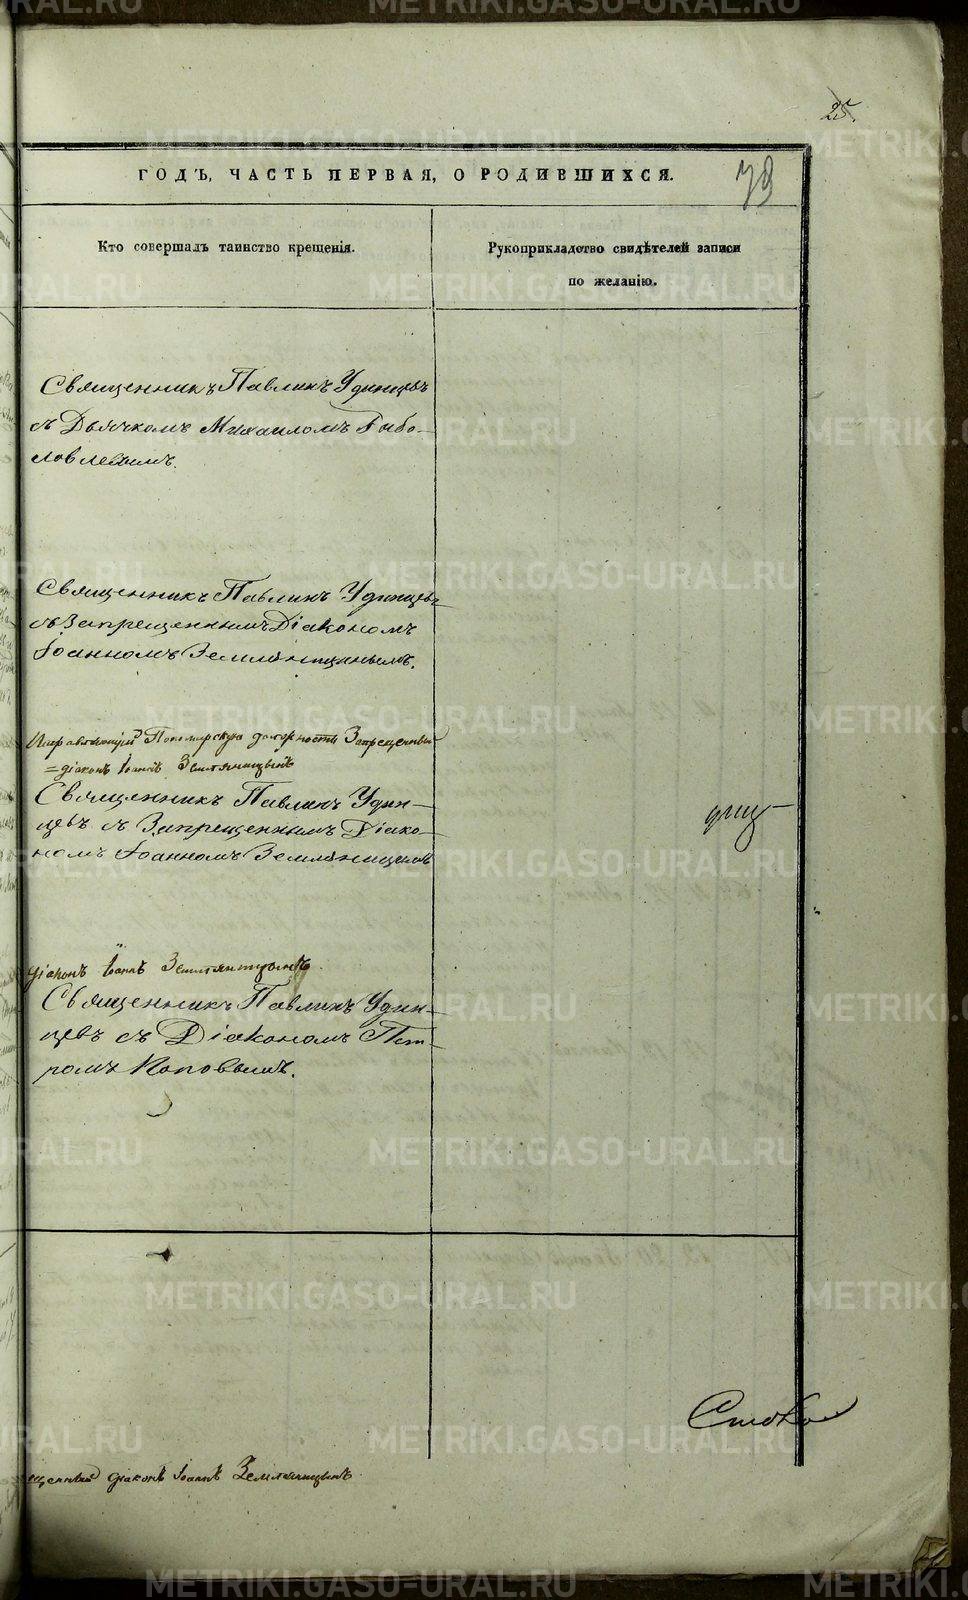 25.
ГОДЪ, ЧАСТЬ ПЕРВАЯ, О РОДИВШИХСЯ.
Кто совершалъ таинство крещенія.
Рукоприкладство свидѣтелей записи
по желанію.
Священникъ Павлинъ Удинцевъ
съ Дьячкомъ Михаиломъ Рыбо-
ловлевымъ.
Священникъ Павлинъ Удинцевъ
съ Запрещеннымъ Діакономъ
Іоанномъ Земляницынымъ.
Пономарскую должность Запрещенный
=діаконъ Іоаннъ Земляницынъ
Священникъ Павлинъ Удин-
цевъ съ Запрещеннымъ Діако-
номъ Іоанномъ Земляницынымъ
діаконъ Іоаннъ Земляницынъ.
Священникъ Павлинъ Удин-
цевъ съ Діакономъ Пет-
ромъ Поповымъ.
Стоко
щенный діаконъ Іоаннъ Земляницынъ
METRIKI.GASO-URAL.RU